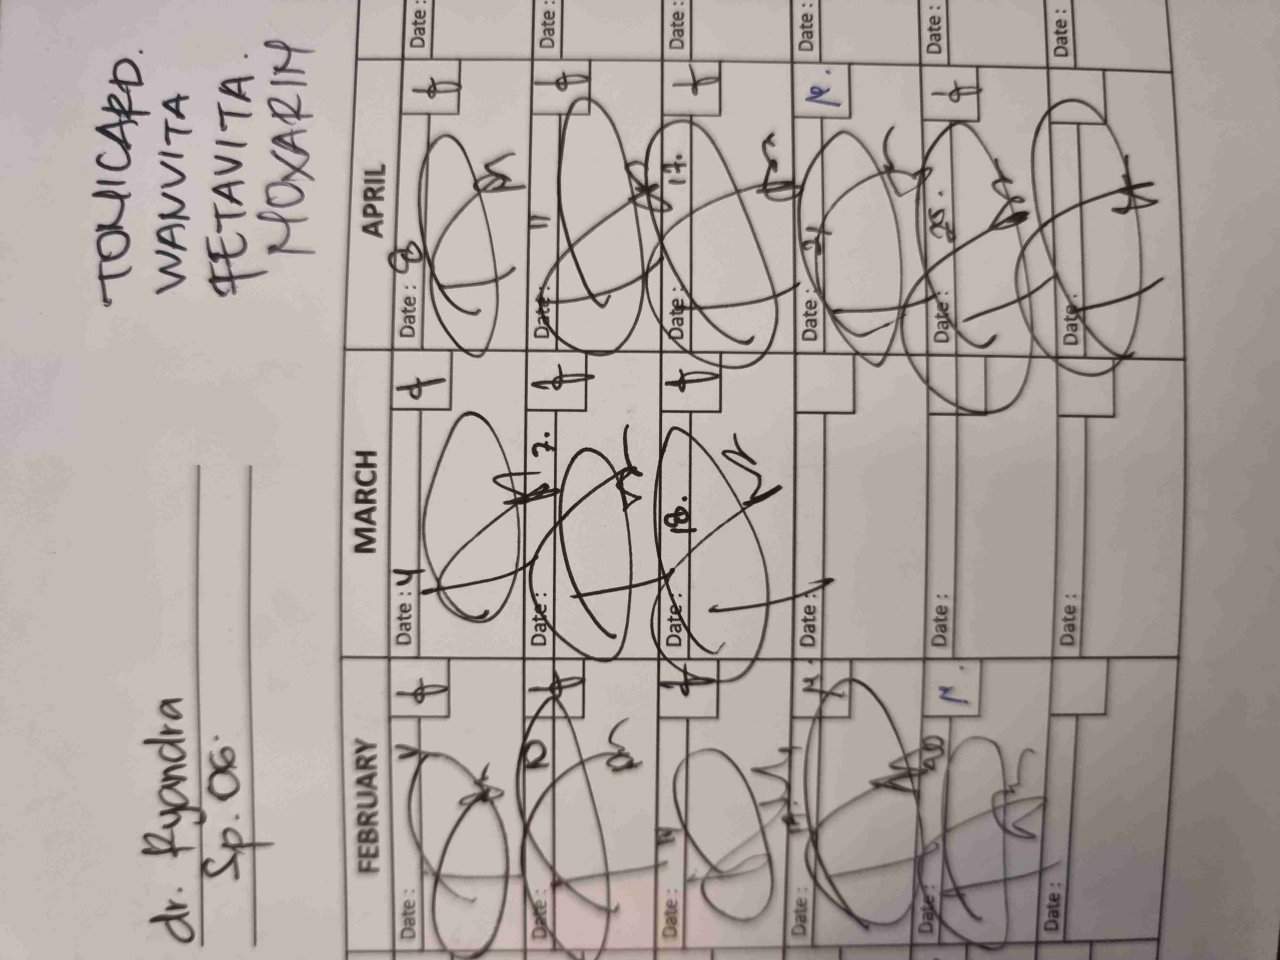 dr. Ryandra
Sp. OG.
TOMICARD.
WANVITA
FETAVITA.
MOXARIM
FEBRUARY MARCH APRIL
Date: 4 Date: 4 Date: 8 Date:
Date: 10 Date: 7. Date: 11 Date:
Date: 14 Date: 18. Date: 17. Date:
Date: 19. Date: Date: 21 Date:
Date: Date: Date: 25. Date:
Date: Date: Date: Date: